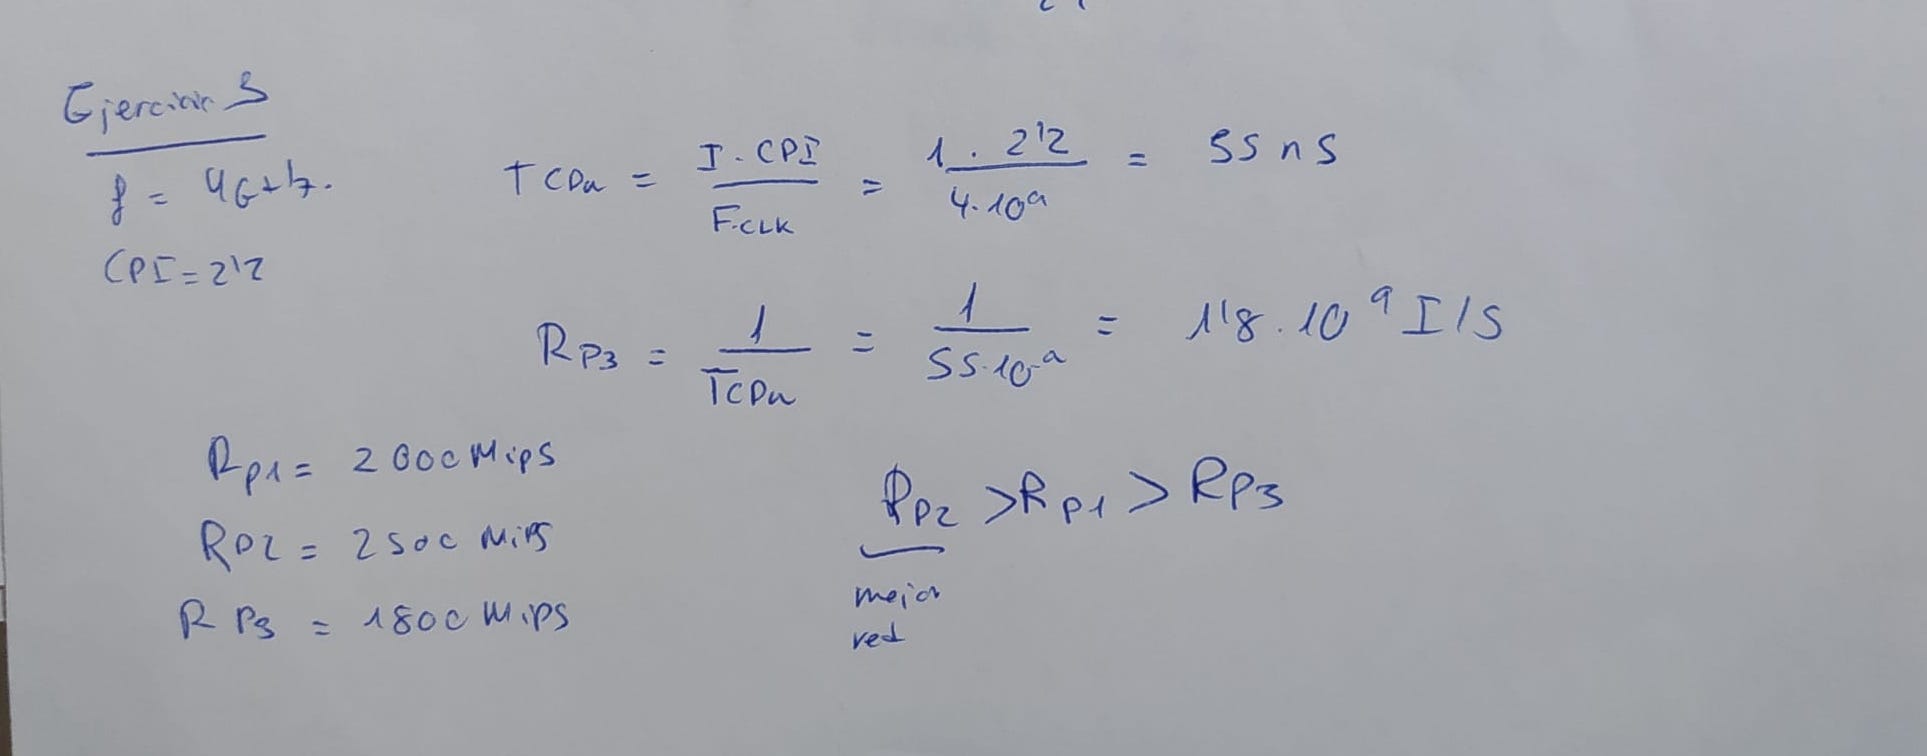 Ejercicio 5
f = 4GHz.
CPI = 2'2
TCPu = I · CPI / F.CLK = 1 · 2'2 / 4·10⁹ = 55 ns
RP3 = 1 / TCPu = 1 / 55·10⁻⁹ = 1'8 · 10⁹ I/S
RP1 = 2000 Mips
RP2 = 2500 Mips
RP3 = 1800 Mips
RP2 > RP1 > RP3
mejor